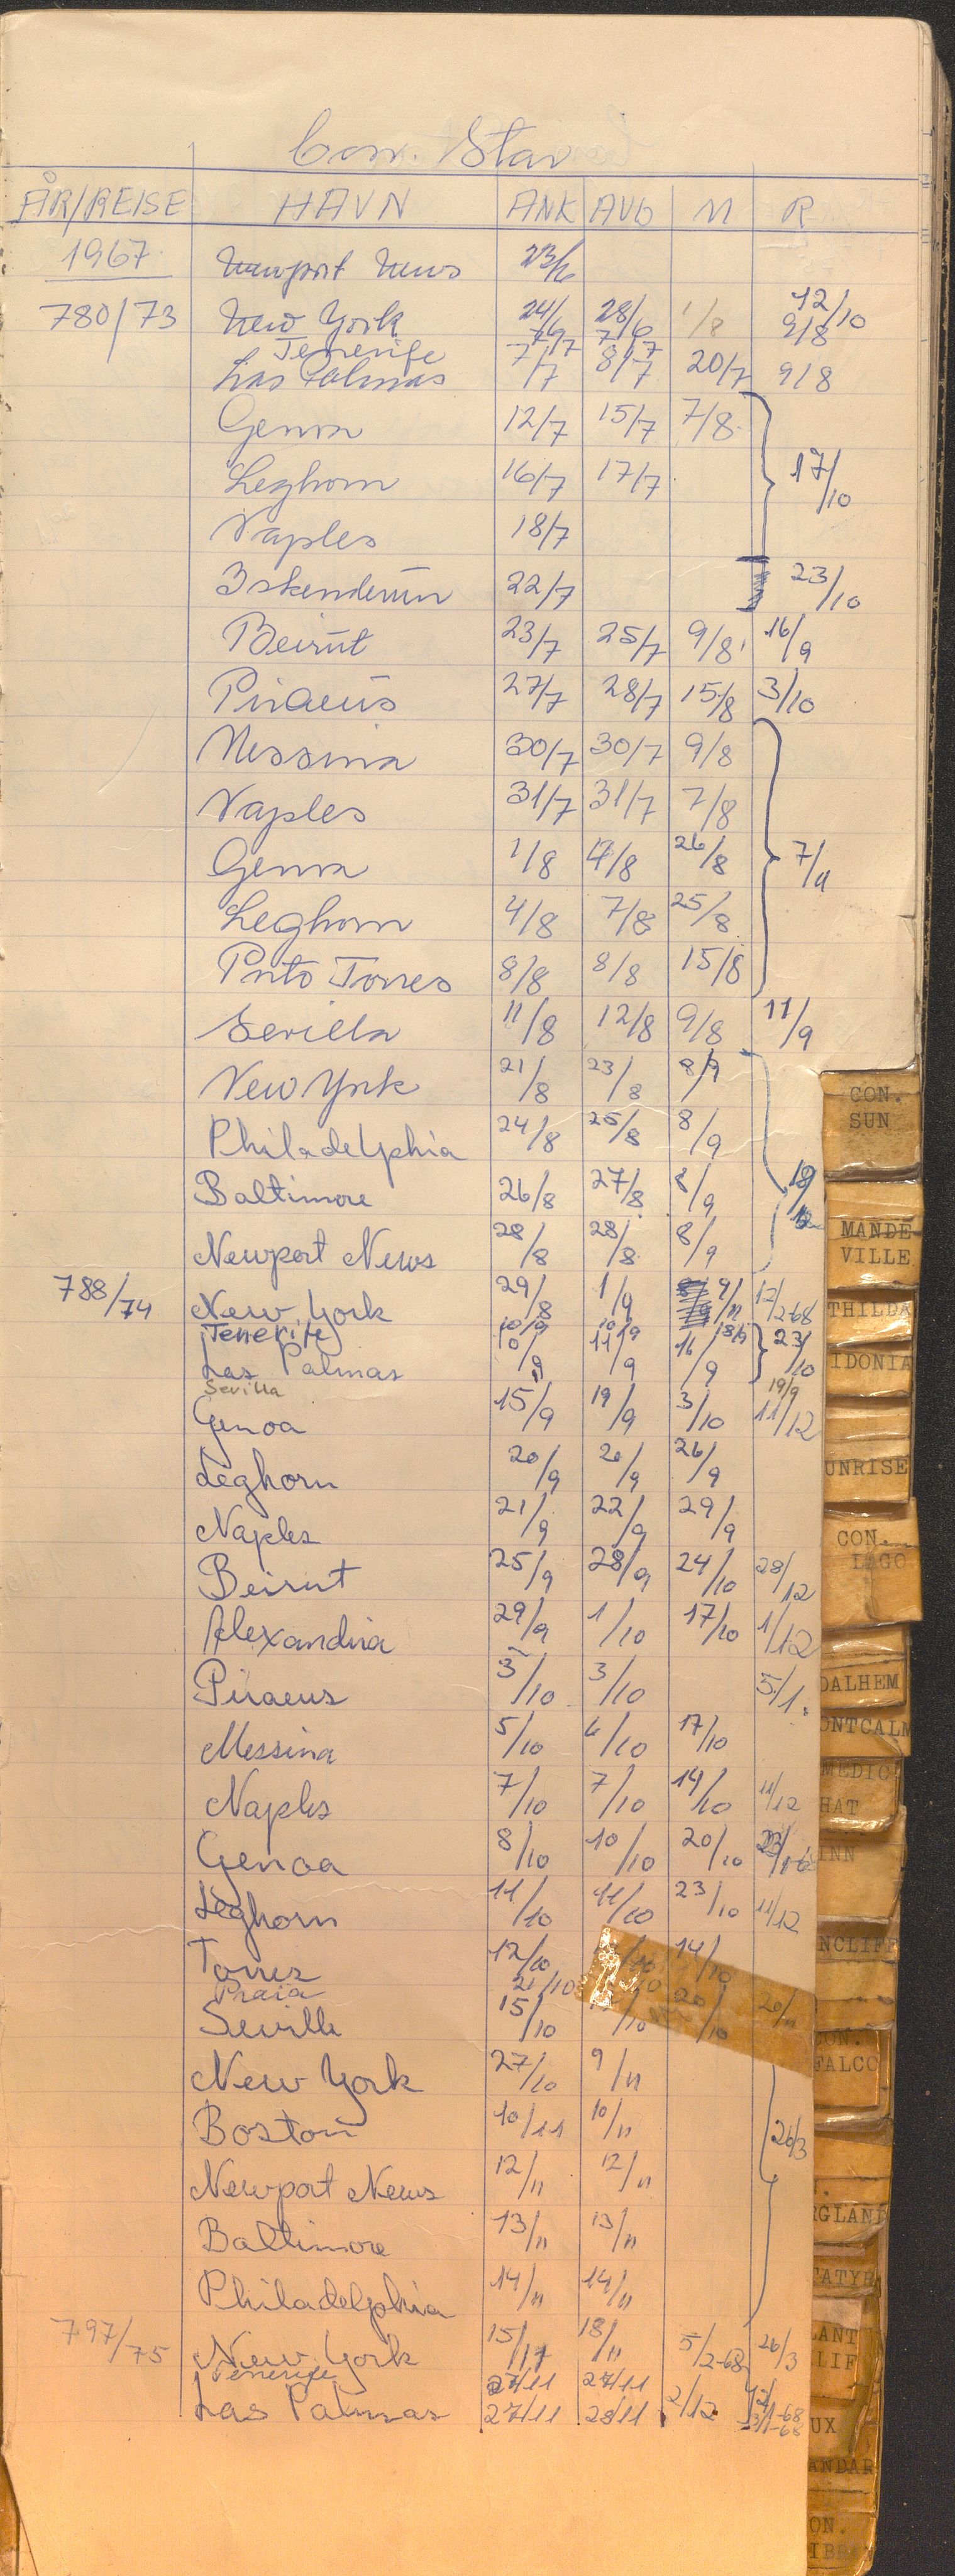 Con. Star
ÅR/REISE HAVN ANK AVG M R
1967 Newport News 23/6
780/73 New York 24/6 28/6 1/8 12/10 9/8
Tenerife 7/7 7/7
Las Palmas 7/7 8/7 20/7 9/8
Genoa 12/7 15/7 7/8
Leghorn 16/7 17/7 17/10
Naples 18/7
Iskenderun 22/7 23/10
Beirut 23/7 25/7 9/8 16/9
Piraeus 27/7 28/7 15/8 3/10
Messina 30/7 30/7 9/8
Naples 31/7 31/7 7/8
Genoa 1/8 4/8 26/8 7/11
Leghorn 4/8 7/8 25/8
Porto Torres 8/8 8/8 15/8
Sevilla 11/8 12/8 9/8 11/9
New York 21/8 23/8 8/9
Philadelphia 24/8 25/8 8/9
Baltimore 26/8 27/8 8/9
Newport News 28/8 28/8 8/9
788/74 New York 29/8 1/9 9/11 12/2-68
Tenerife 10/9 10/9 18/9
Las Palmas 10/9 11/9 16/9 23/10
Sevilla 19/9
Genoa 15/9 19/9 3/10 11/12
Leghorn 20/9 20/9 26/9
Naples 21/9 22/9 29/9
Beirut 25/9 28/9 24/10 28/12
Alexandria 29/9 1/10 17/10 1/12
Piraeus 3/10 3/10 5/1
Messina 5/10 6/10 17/10
Naples 7/10 7/10 14/10 11/12
Genoa 8/10 10/10 20/10
Leghorn 11/10 11/10 23/10 11/12
Torres 12/10 14/10
Praia 21/10
Seville 15/10 20/10 20/11
New York 27/10 9/11
Boston 10/11 10/11 26/3
Newport News 12/11 12/11
Baltimore 13/11 13/11
Philadelphia 14/11 14/11
797/75 New York 15/11 18/11 5/2-68 26/3
Tenerife 27/11 27/11
Las Palmas 27/11 28/11 2/12
CON.
SUN
MANDE
VILLE
THILDA
IDONIA
UNRISE
CON.
IAGO
DALHEM
ONTCALM
MEDIC
HAT
INN
NCLIFF
CON.
FALCO
RGLAND
TATYR
LANT
LIF
UX
ANDAR
ON.